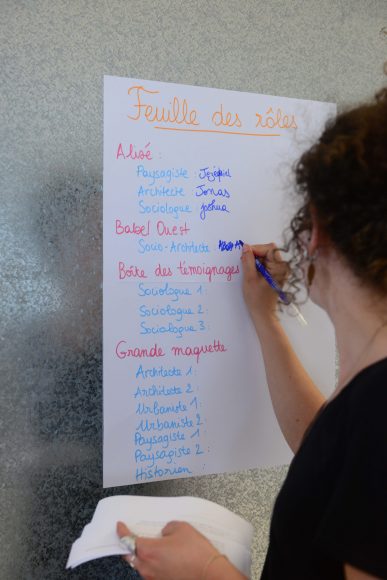 Feuille des rôles
Alizé :
Paysagiste :
Architecte : Jonas
Sociologue : Joshua
Babel Ouest
Socio-Architecte :
Boîte des témoignages
Sociologue 1 :
Sociologue 2 :
Sociologue 3 :
Grande maquette
Architecte 1 :
Architecte 2 :
Urbaniste 1 :
Urbaniste 2
Paysagiste 1 :
Paysagiste 2 :
Historien :